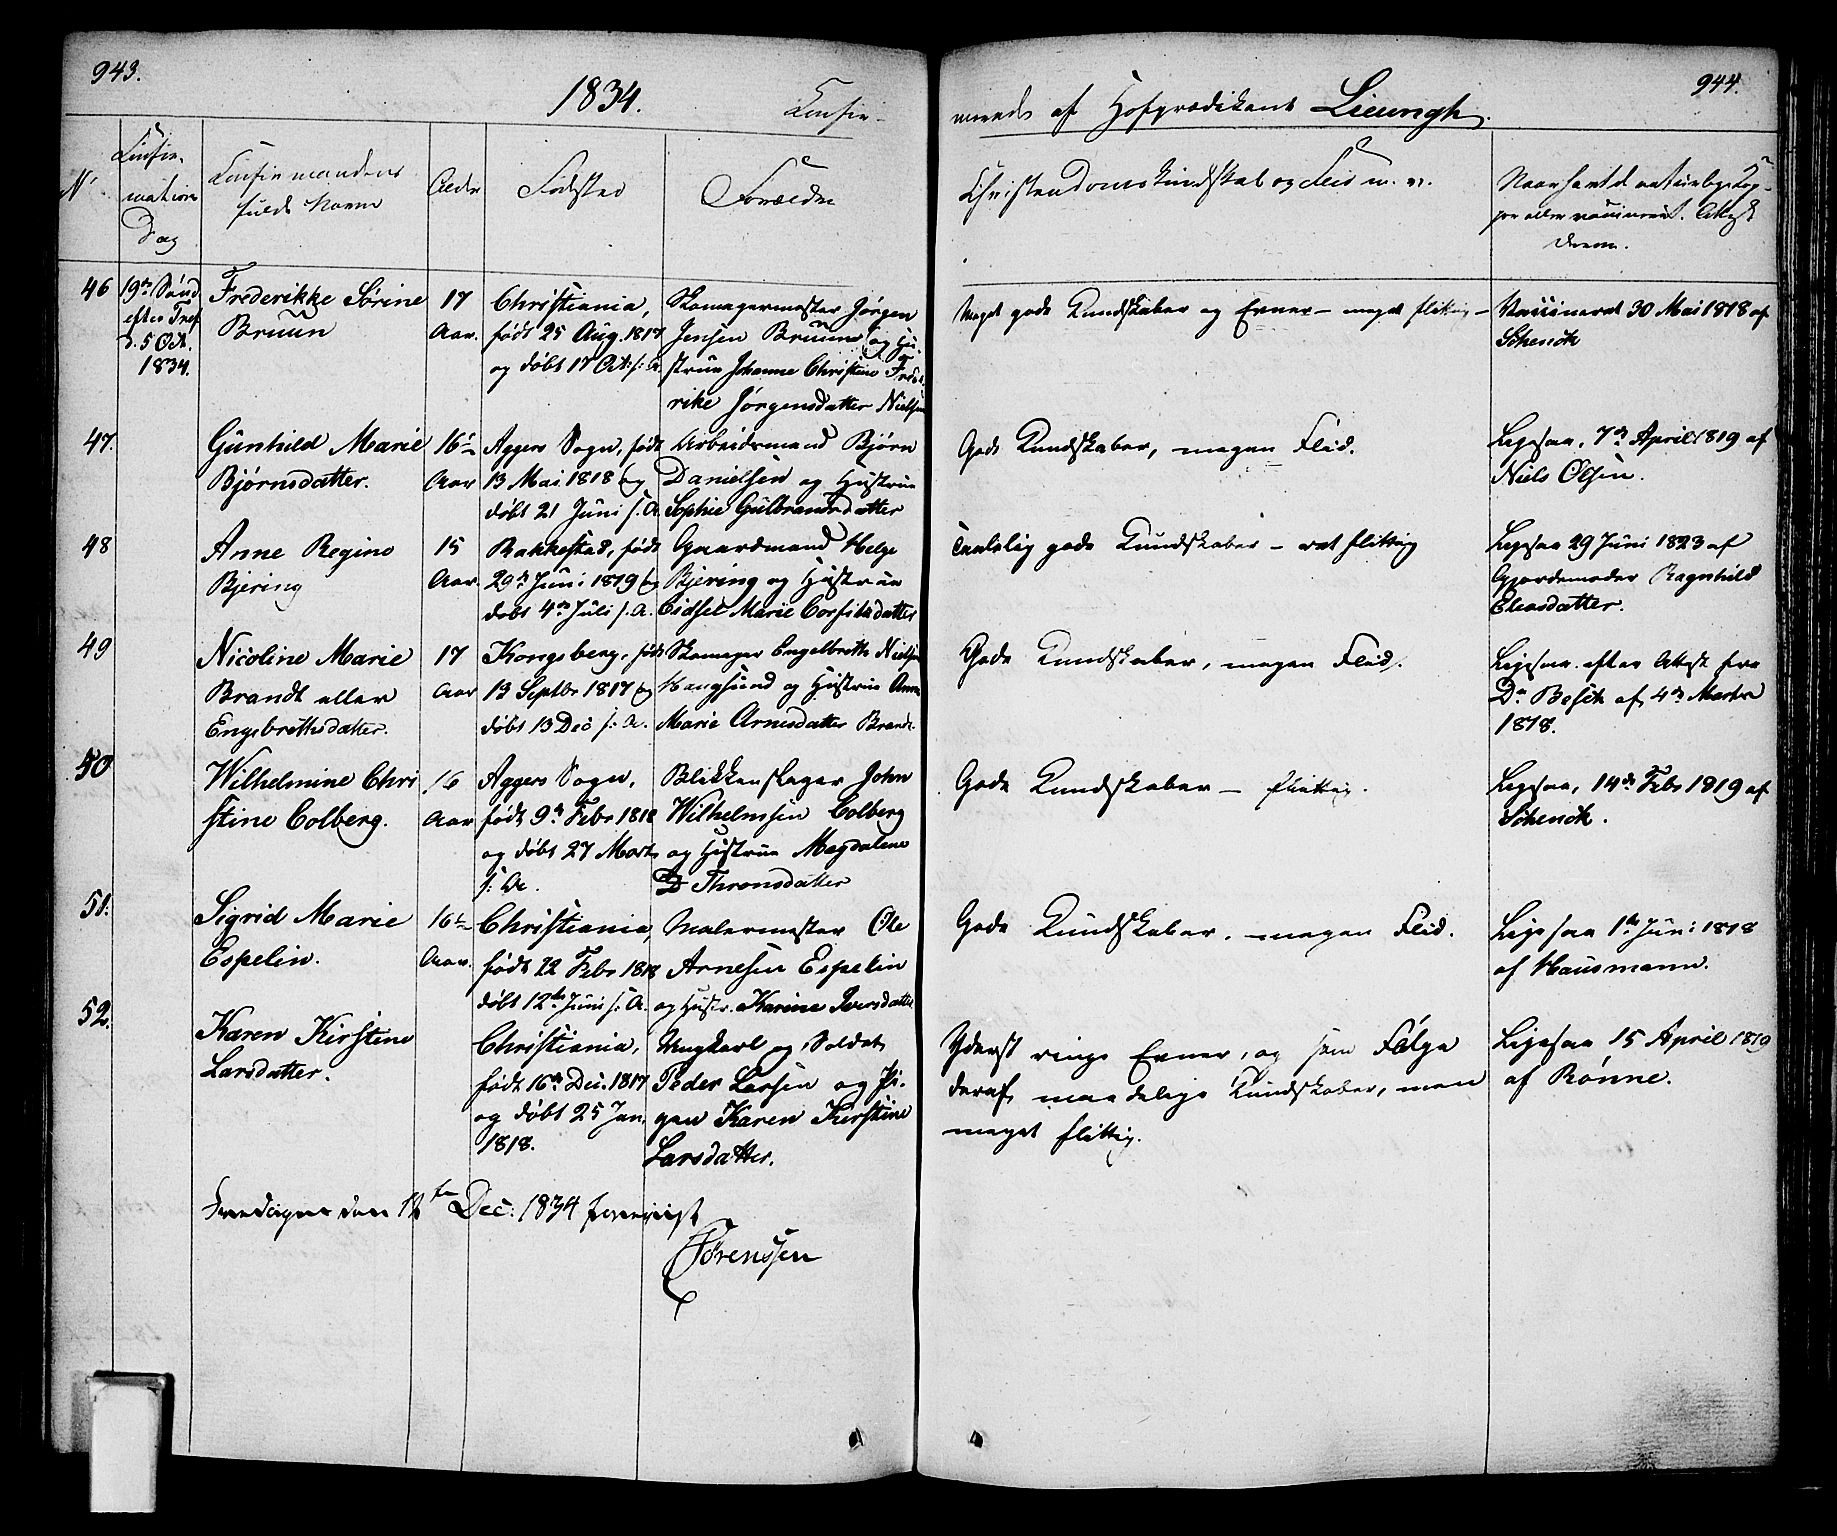 943.
1834.
Confir-
N°
Confir-
mations
Dag
Confirmandens
fulde Navn
Alder
Fødsted
Forældre
46
19de Sønd
efter Tref
d. 5 Oct.
1834.
Frederikke Sørine
Bruun
17
Aar.
Christiania,
født 25 Aug. 1817
og døbt 17 Oct. s: A.
Skomagermester Jørgen
Jensen Bruun og Hu-
strue Johanne Christine Frede-
rike Jørgensdatter Nielsen
47.
Gunhild Marie
Bjørnsdatter.
16½
Aar
Aggers Sogn, født
13 Mai 1818 og
døbt 21 Juni s. A.
Arbeidsmand Bjørn
Danielsen og Hustrue
Sophie Gulbrandsdatter
48
Anne Regine
Bjering
15
Aar.
Rakkestad, født
29de Juni 1819 og
døbt 4de Juli s. A.
Gaardmand Helge
Bjering og Hustrue
Eidset Marie Corfitzdatter
49
Nicoline Marie
Brandt eller
Engebretthsdatter.
17
Aar
Kongsberg, født
13 Septbr 1817 og
døbt 13 Dec s. A.
Skomager Engelbreth Nielsen
Haugsund og Hustrue Anne
Marie Arnesdatter Brandt.
50
Wilhelmine Chri
stine Colberg.
16
Aar
Aggers Sogn,
født 9de Febr 1818
og døbt 27 Marts
s: A.
Blikkenslager John
Wilhelmsen Colberg
og Hustrue Magdalene
D Thronsdatter
51.
Sigrid Marie
Espelin.
16½
Aar.
Christiania,
født 22 Febr 1818
døbt 12te Juni s. A.
Malermester Ole
Arnesen Espelin
og Hustr. Karine Iversdatter
52.
Karen Kirstine
Larsdatter.
Christiania,
født 16de Dec. 1817
og døbt 25 Jan.
1818.
Ungkarl og Soldat
Peder Larsen og Pi-
gen Karen Kirstine
Larsdatter.
den 12te Dec: 1834
Sørenssen
944.
merede af Hofprædikant Lieungh.
Christendomskundskab og Flid m. v.
Naar havt de naturlige Kop-
per eller vaccineret. Attest
derom.
Meget gode Kundskaber og Evner – meget flittig –
Vaccineret 30 Mai 1818 af
Schenck
Gode Kundskaber, megen Flid.
Ligesaa, 7de April 1819 af
Niels Olsen.
Taalelig gode Kundskaber – ret flittig
Ligesaa 29 Juni 1823 af
Gjordemoder Ragnhild
Eliasdatter.
Gode Kundskaber, megen Flid.
Ligesaa efter Attest fra
Dr Besch af 4de Marts
1818.
Gode Kundskaber – flittig.
Ligesaa, 14de Febr 1819 af
Schenck.
Gode Kundskaber, megen Flid.
Ligesaa 1te Juni 1818
af Hausmann.
Yderst ringe Evner, og som Følge
deraf maadelige Kundskaber, men
meget flittig.
Ligesaa 15 April 1819
af Rønne.